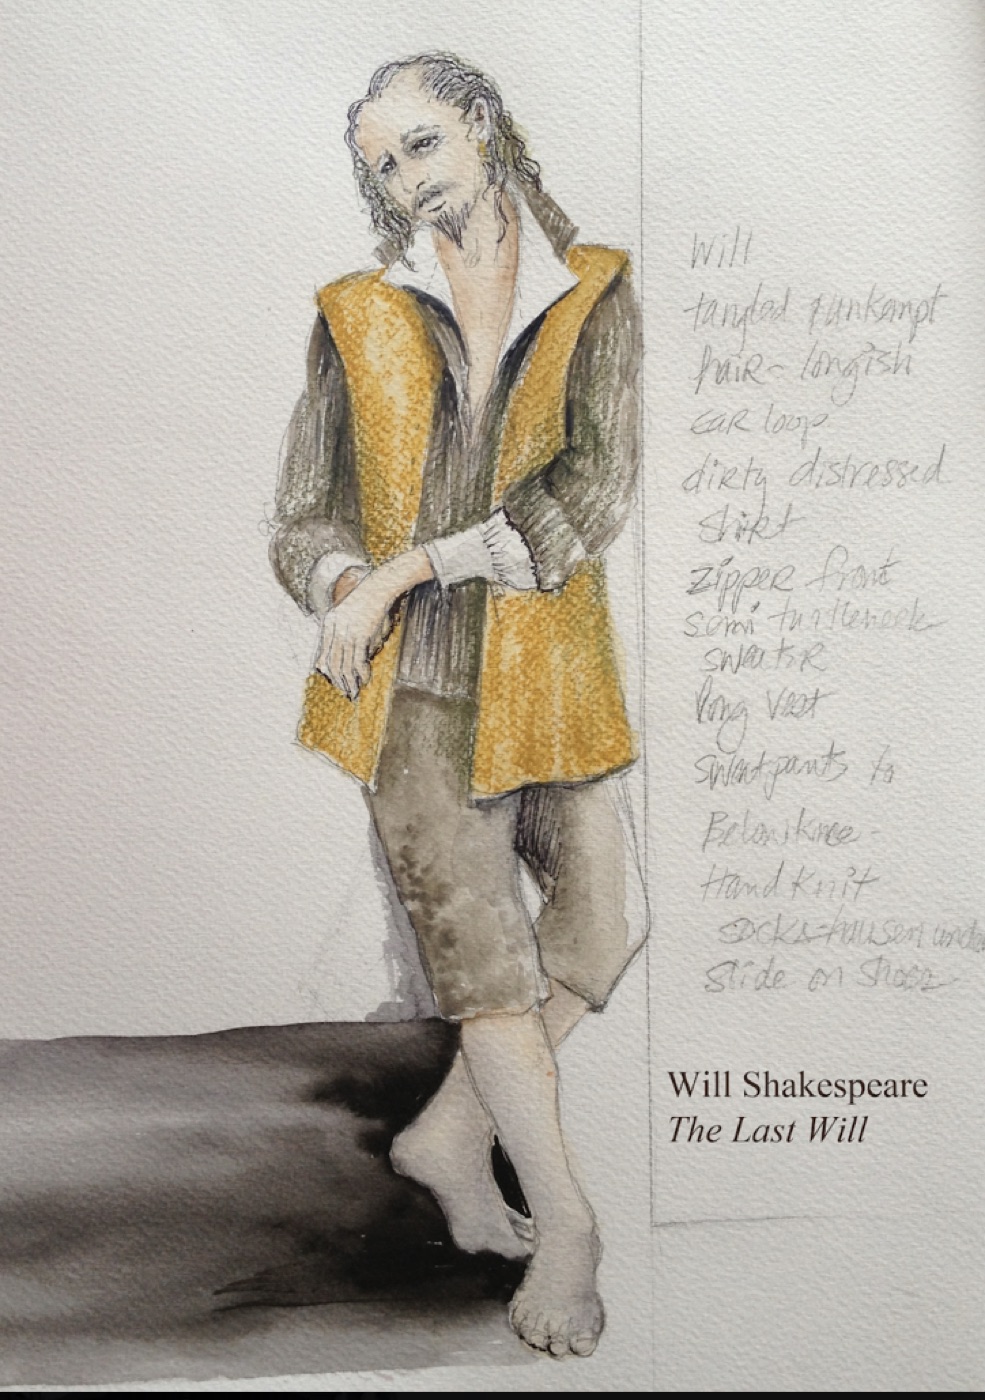 Will
tangled & unkempt
hair - longish
ear loop
dirty distressed
shirt
zipper front
semi turtleneck
sweater
long vest
sweatpants to
Below knee -
Hand knit
socks
slide on shoes
Will Shakespeare
The Last Will